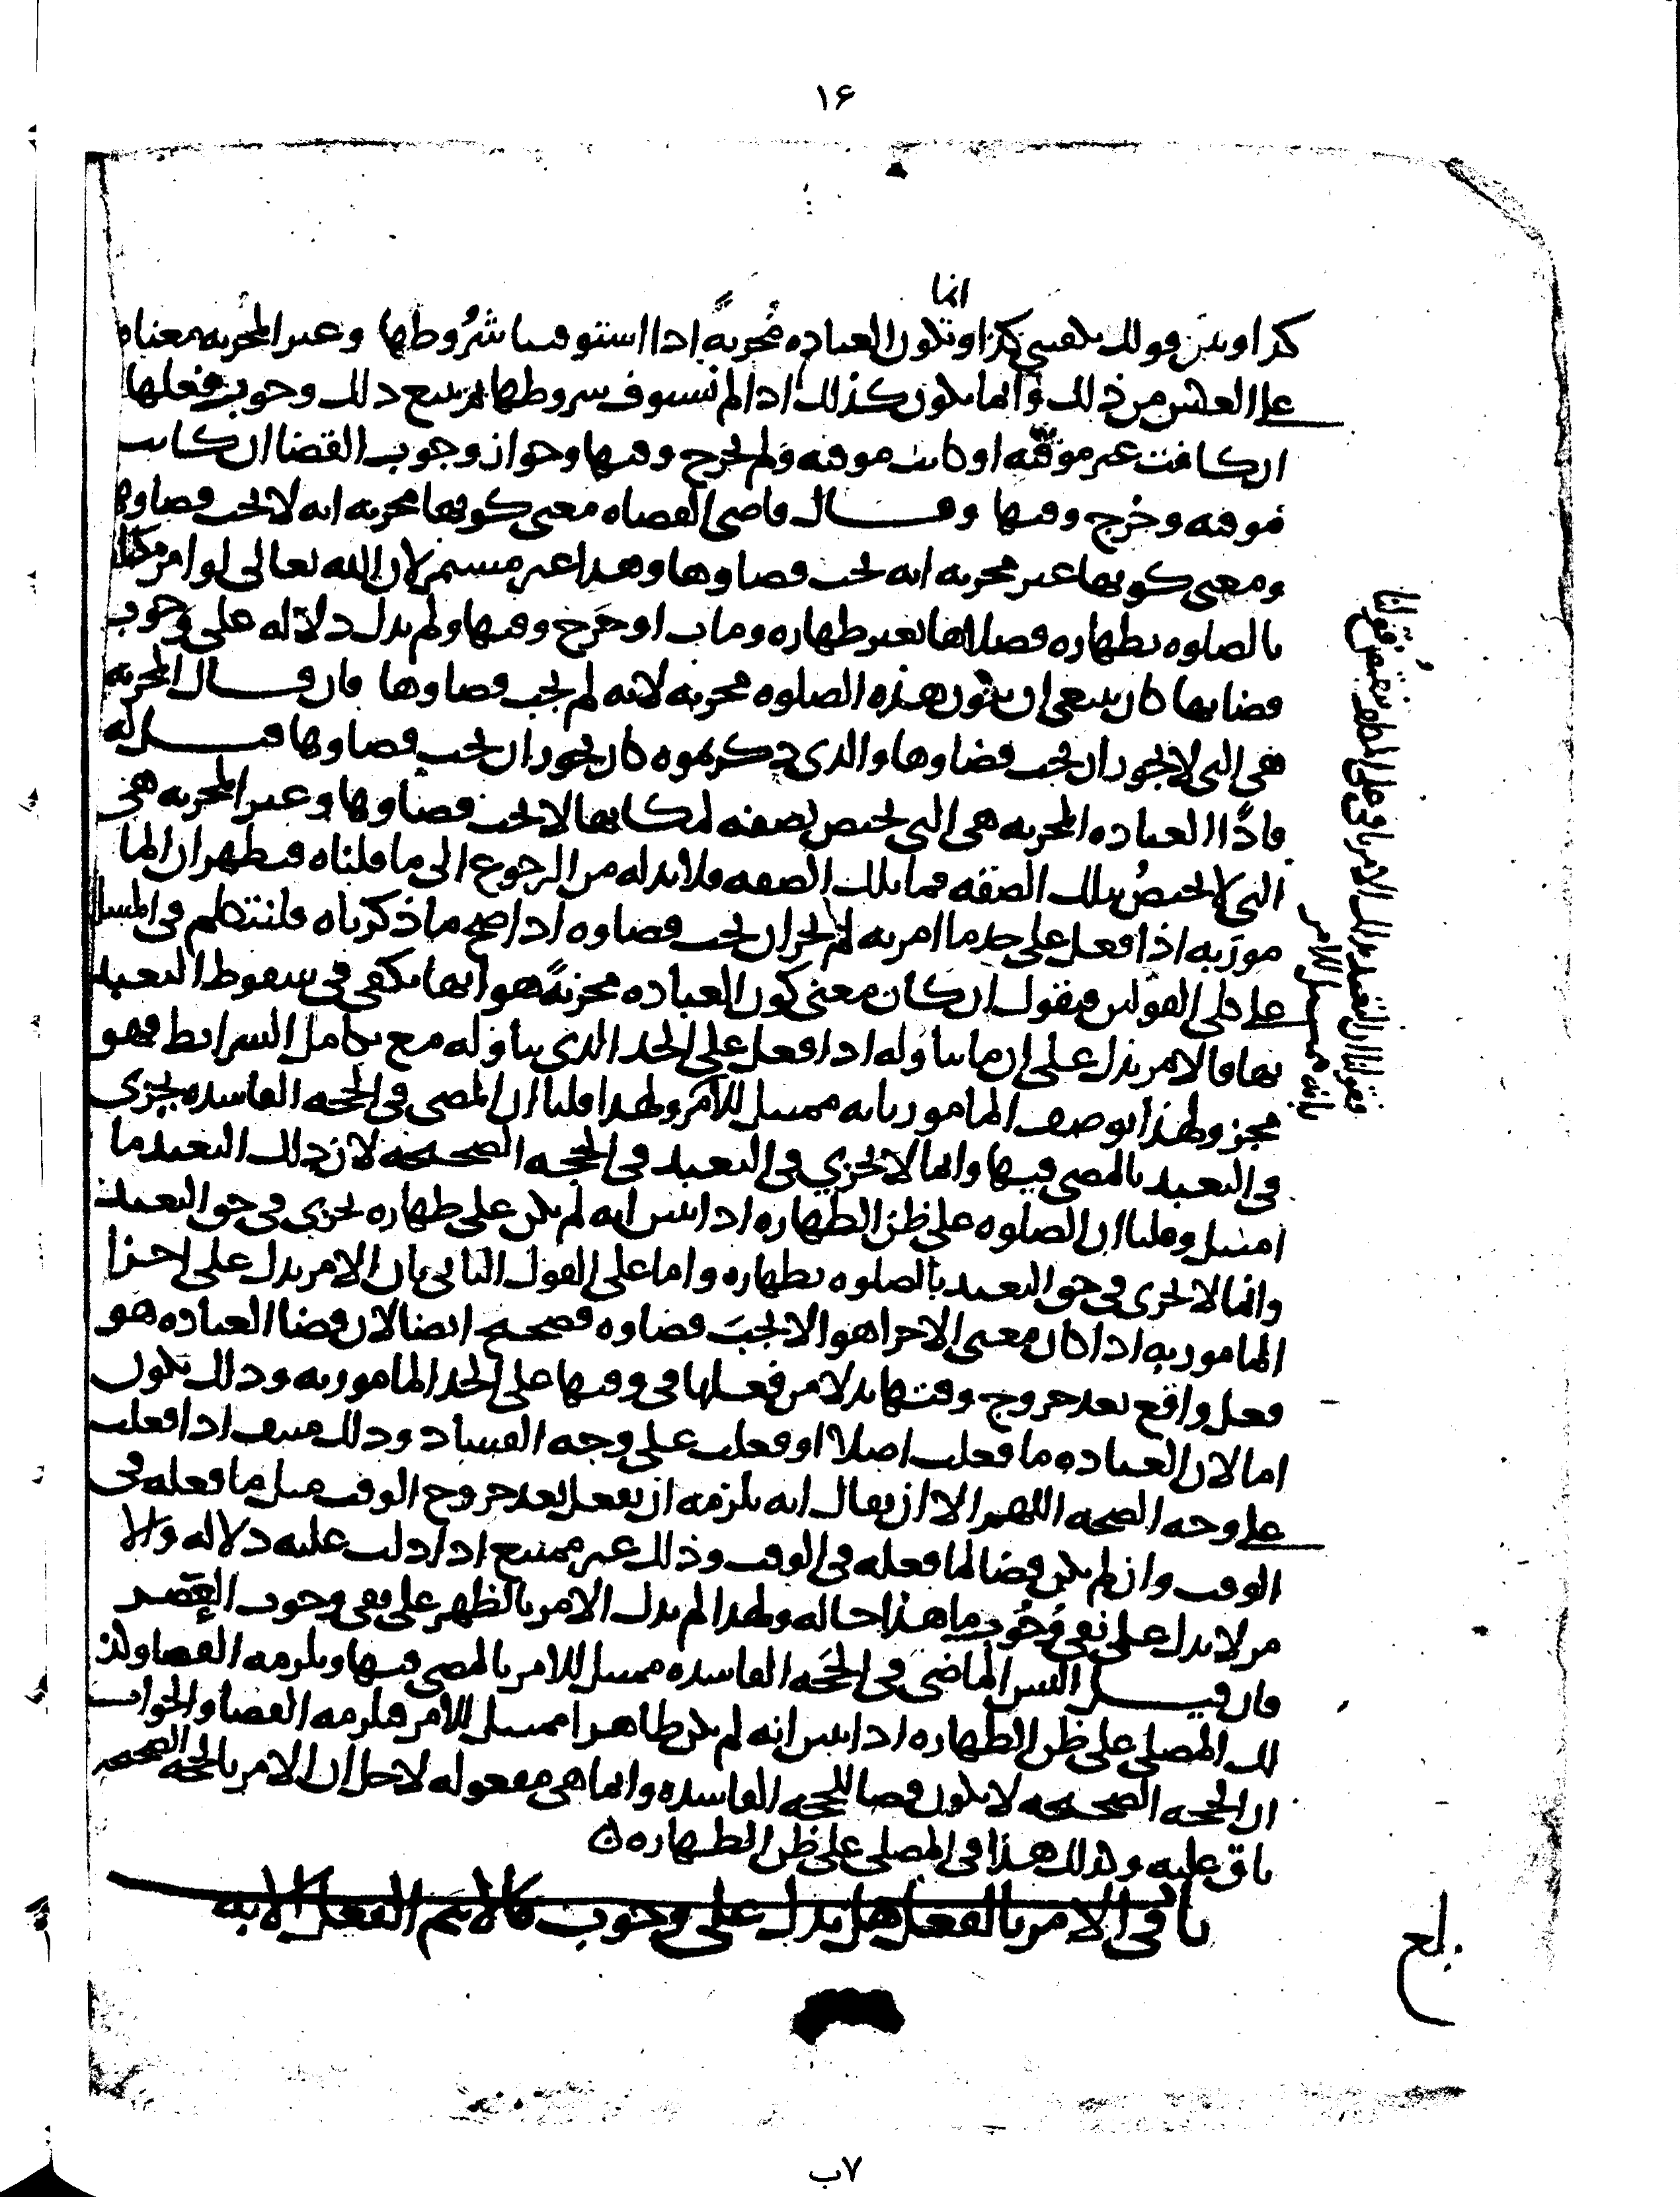 ١۶
انما
كذا وبين قولك يكفيني كذا وتكون العباده مجزيةً اذا استوفينا شُروطها وغير المجزيه معناه
على العكس من ذلك وانما يكون كذلك اذا لم نستوف شروطها ثم يتبع ذلك وجوب فعلها
ان كانت غير موقته او كانت موقته ولم يخرج وقتها وجواز وجوب القضا ان كانت
موقته وخرج وقتها وقال قاضي القضاه معنى كونها مجزيه انه لا يجب قضاوها
ومعنى كونها غير مجزيه انه يجب قضاوها وهذا غير مستمر لان الله تعالى لو امر مكلفا
بالصلوه بطهاره فصلاها بغير طهاره ومات او خرج وقتها ولم يدل دلاله على وجوب
قضايها كان ينبغي ان تكون هذه الصلوه مجزيه لانه لم يجب قضاوها فان قال المجزيه
هي التي لا يجوز ان يجب قضاوها والذي ذكرتموه كان يجوز ان يجب قضاوها قيل له
فاذًا العباده المجزيه هي التي تختص بصفه لمكانها لا يجب قضاوها وغير المجزيه هي
التي لا تختص بتلك الصفه فما تلك الصفه فلا بد له من الرجوع الى ما قلناه فيظهر ان الما
مورَ به اذا فعل على حد ما امر به لم يجز ان يجب قضاوه اذا صح ما ذكرناه فلنتكلم في المسله
على كلي القولين فنقول ان كان معنى كون العباده مجزيةً هو انها تكفي في سقوط التعبد
بها فالامر يدل على ان ما تناوله اذا فعل على الحد الذي تناوله مع تكامل الشرايط فهو
مجز ولهذا يوصف المامور بانه ممتثل للامر ولهذا قلنا ان المضي في الحجه الفاسده يجزي
في التعبد بالمضي فيها وانما لا يجزي في التعبد في الحجه الصحيحه لان ذلك التعبد ما
امتثل وقلنا ان الصلوه على ظن الطهاره اذا تبين انه لم يكن على طهاره تجزي في حق التعبد
وانما لا تجزي في حق التعبد بالصلوه بطهاره واما على القول الثاني فان الامر يدل على اجزا
المامور به اذا كان معنى الاجزا هو الا يجبَ قضاوه فصحيح ايضا لان قضا العباده هو
فعل واقع بعد خروج وقتها بدلا من فعلها في وقتها على الحد المامور به وذلك يكون
اما لان العباده ما فعلت اصلا او فعلت على وجه الفساد وذلك منتف اذا فعلت
على وجه الصحه اللهم الا ان يقال انه يلزمه ان يفعل بعد خروج الوقت مثل ما فعله في
الوقت وان لم يكن قضا لما فعله في الوقت وذلك غير ممتنع اذا دلت عليه دلاله والا
مر لا يدل على نفي وجُوب ما هذا حاله ولهذا لم يدل الامر بالظهر على نفي وجوب العصر
فان قيل اليس الماضي في الحجَه الفاسده ممتثل للامر بالمضي فيها ويلزمه القضا وكذ
لك المصلي على ظن الطهاره اذا تبين انه لم يكن طاهرا ممتثل للامر فلزمه القضا والجواب
ان الحجه الصحيحه لا تكون قضا للحجه الفاسده وانما هي مفعوله لاجل ان الامر بالحجه الصحيحه
باق عليه وكذلك هذا في المصلي على ظن الطهاره
باب في الامر بالفعل هل يدل على وجوب ما لا يتم الفعل الا به
بلغ
٧ب